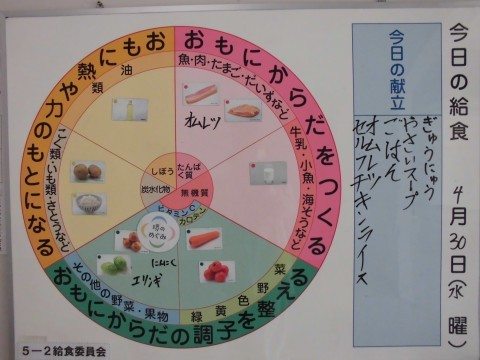 今日の給食 4月30日(水曜)
今日の献立
ぎゅうにゅう
やさいスープ
ごはん
オムレツ
セルフチキンライス
おもにからだをつくる
魚・肉・たまご・だいずなど
牛乳・小魚・海そうなど
オムレツ
おもに熱や力のもとになる
油類
こく類・いも類・さとうなど
しぼう
たんぱく質
炭水化物
無機質
ビタミンC
カロテン
畑のめぐみ
にんにく
エリンギ
その他の野菜・果物
緑黄色野菜
おもにからだの調子を整える
5-2給食委員会